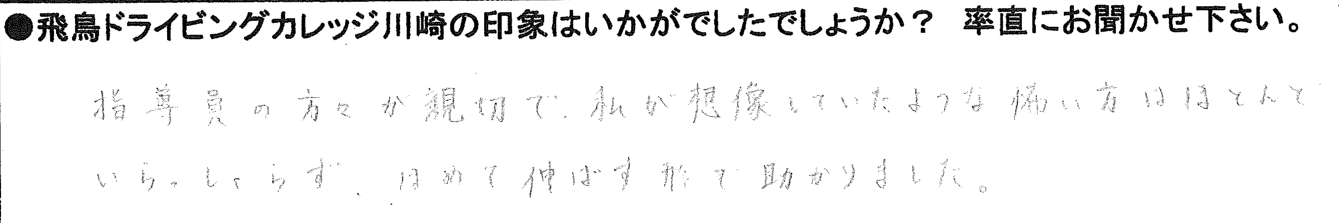 ●飛鳥ドライビングカレッジ川崎の印象はいかがでしたでしょうか？　率直にお聞かせ下さい。
指導員の方々が親切で、私が想像していたような怖い方はほとんど
いらっしゃらず、ほめて伸ばす形で助かりました。